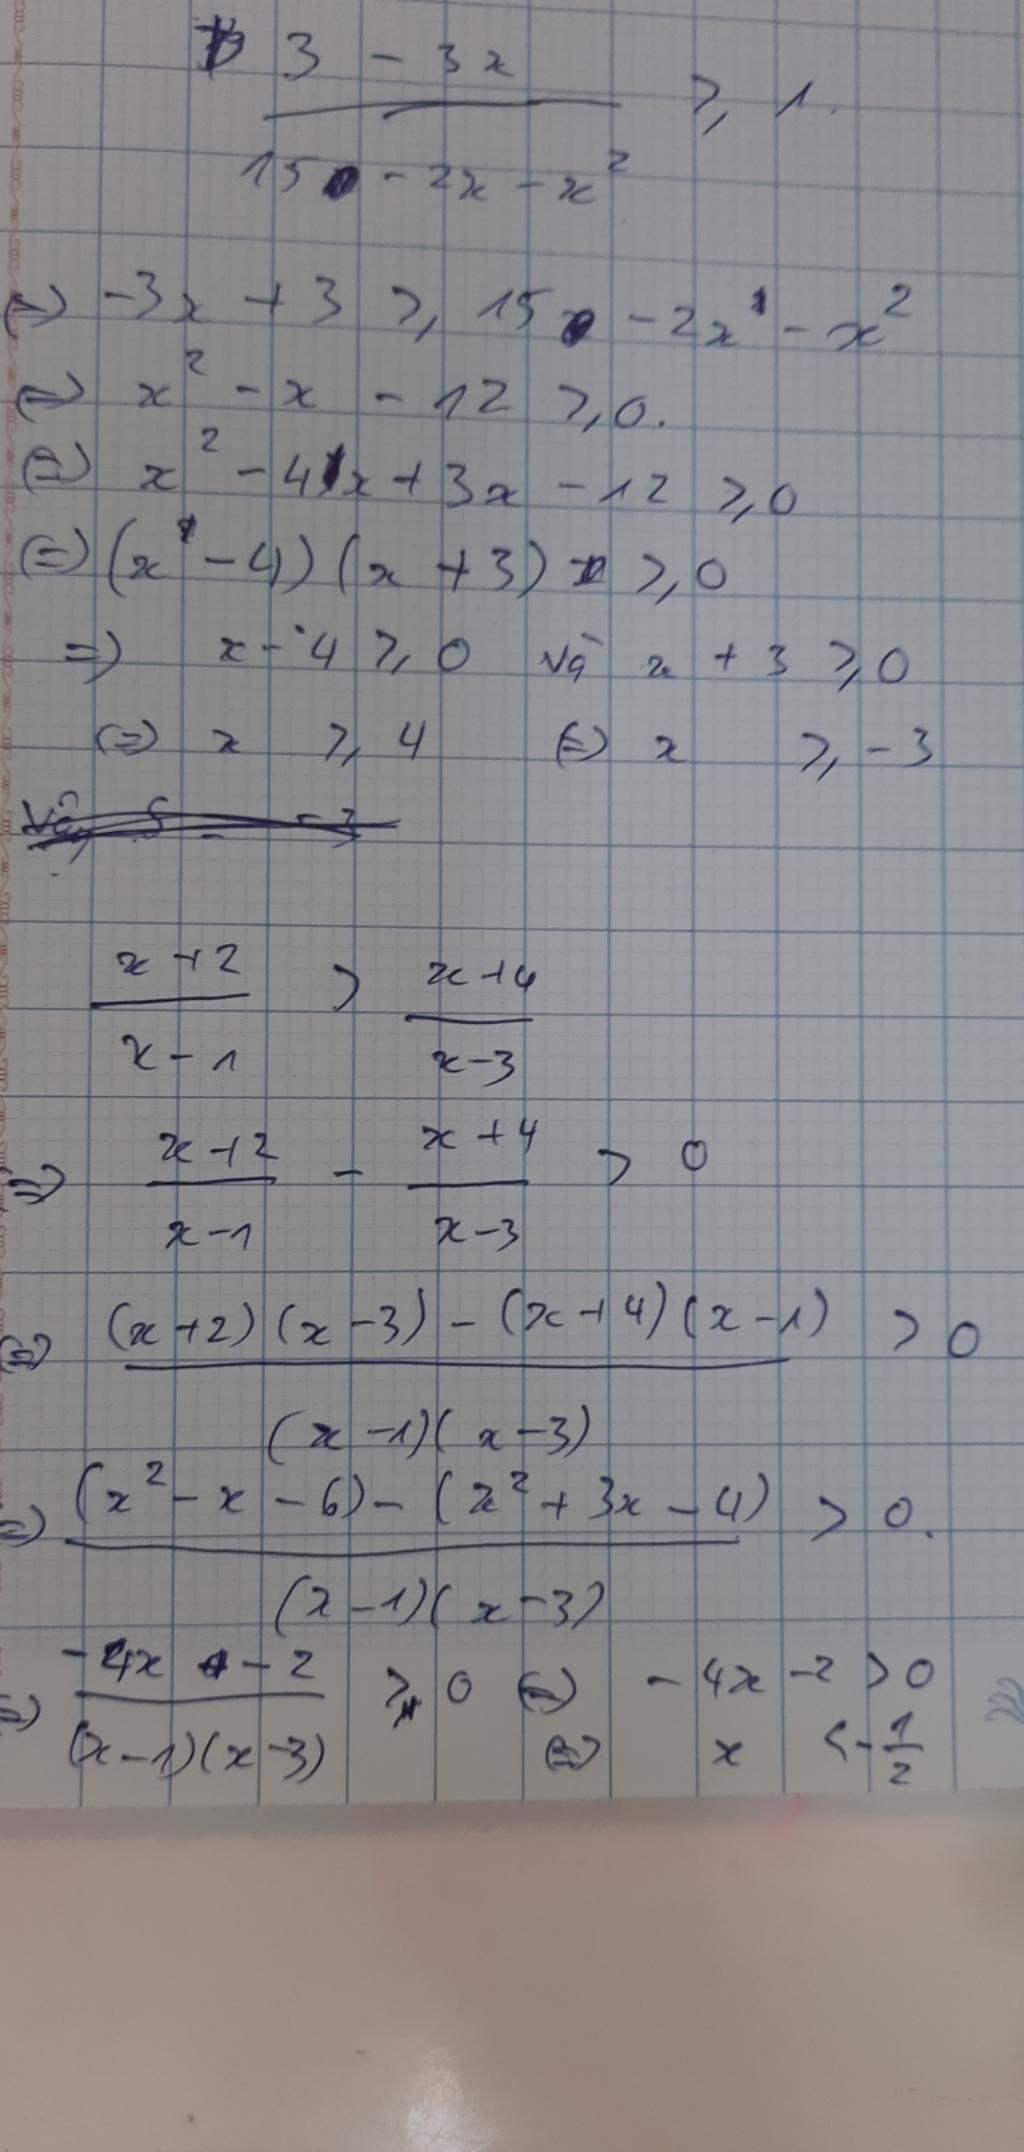 3 - 3x
⩾ 1.
15 - 2x - x²
(=) -3x + 3 ⩾ 15 - 2x - x²
(=) x² - x - 12 ⩾ 0.
(=) x² - 4x + 3x - 12 ⩾ 0
(=) (x - 4) (x + 3) ⩾ 0
=) x - 4 ⩾ 0 và x + 3 ⩾ 0
(=) x ⩾ 4 (=) x ⩾ -3
x+2 > x+4
x-1 x-3
=) x+2 - x+4 > 0
x-1 x-3
(=) (x+2)(x-3) - (x+4)(x-1) > 0
(x-1)(x-3)
(=) (x² - x - 6) - (x² + 3x - 4) > 0.
(x-1)(x-3)
(=) -4x - 2 > 0 (=) -4x - 2 > 0
(x-1)(x-3) (=) x < -1/2